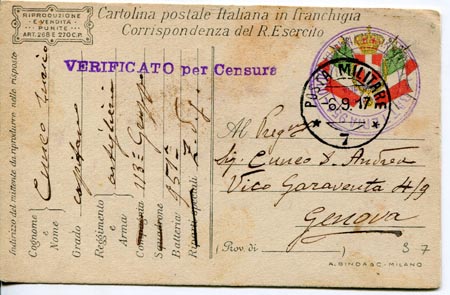 RIPRODUZIONE
E VENDITA
PUNITE
ART. 268 E 270 C.P.
Cartolina postale Italiana in franchigia
Corrispondenza del R. Esercito
VERIFICATO per Censura
POSTA MILITARE
6.9.17
7
Indirizzo del mittente da riprodurre nelle risposte
Cognome e Nome Cuneo
Grado capitano
Reggimento e Arma artiglieria
Compagnia 113º Gruppo
Squadrone
Batteria 951ª
Riparti speciali
Al Preg.
Sig. Cuneo D. Andrea
Vico Garaventa 4/9
Genova
(Prov. di )
S 7
A. BINDA & C. - MILANO